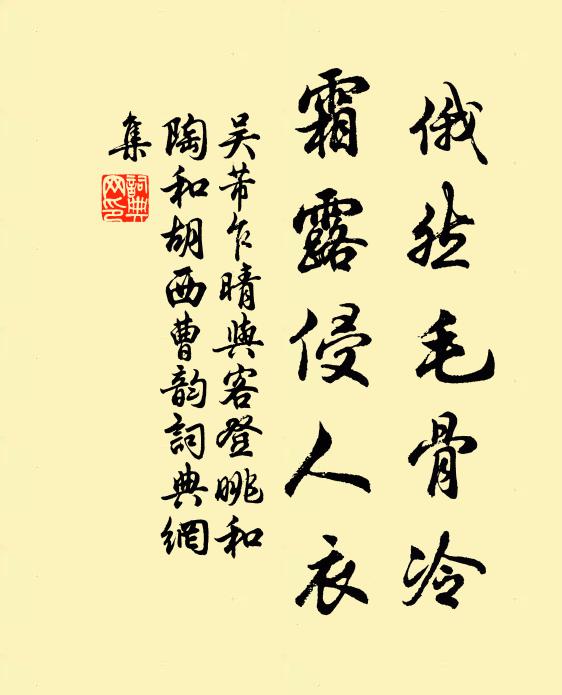 俄然毛骨冷
霜露侵人衣
吴芾乍晴與客登眺和
陶和胡西曹韵詞典網
集
詞典
网印